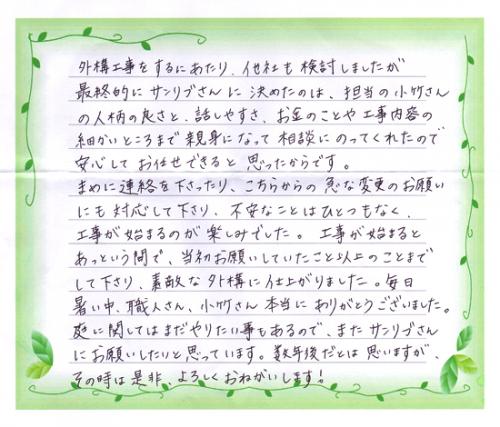 外構工事をするにあたり、他社も検討しましたが
最終的にサンリブさんに決めたのは、担当の小竹さん
の人柄の良さと、話しやすさ、お金のことや工事内容の
細かいところまで親身になって相談にのってくれたので
安心してお任せできると思ったからです。
まめに連絡を下さったり、こちらからの急な変更のお願い
にも対応して下さり、不安なことはひとつもなく、
工事が始まるのが楽しみでした。工事が始まると
あっという間で、当初お願いしていたこと以上のことまで
して下さり、素敵な外構に仕上がりました。毎日
暑い中、職人さん、小竹さん本当にありがとうございました。
庭に関してはまだやりたい事もあるので、またサンリブさん
にお願いしたいと思っています。数年後だとは思いますが、
その時は是非、よろしくおねがいします!